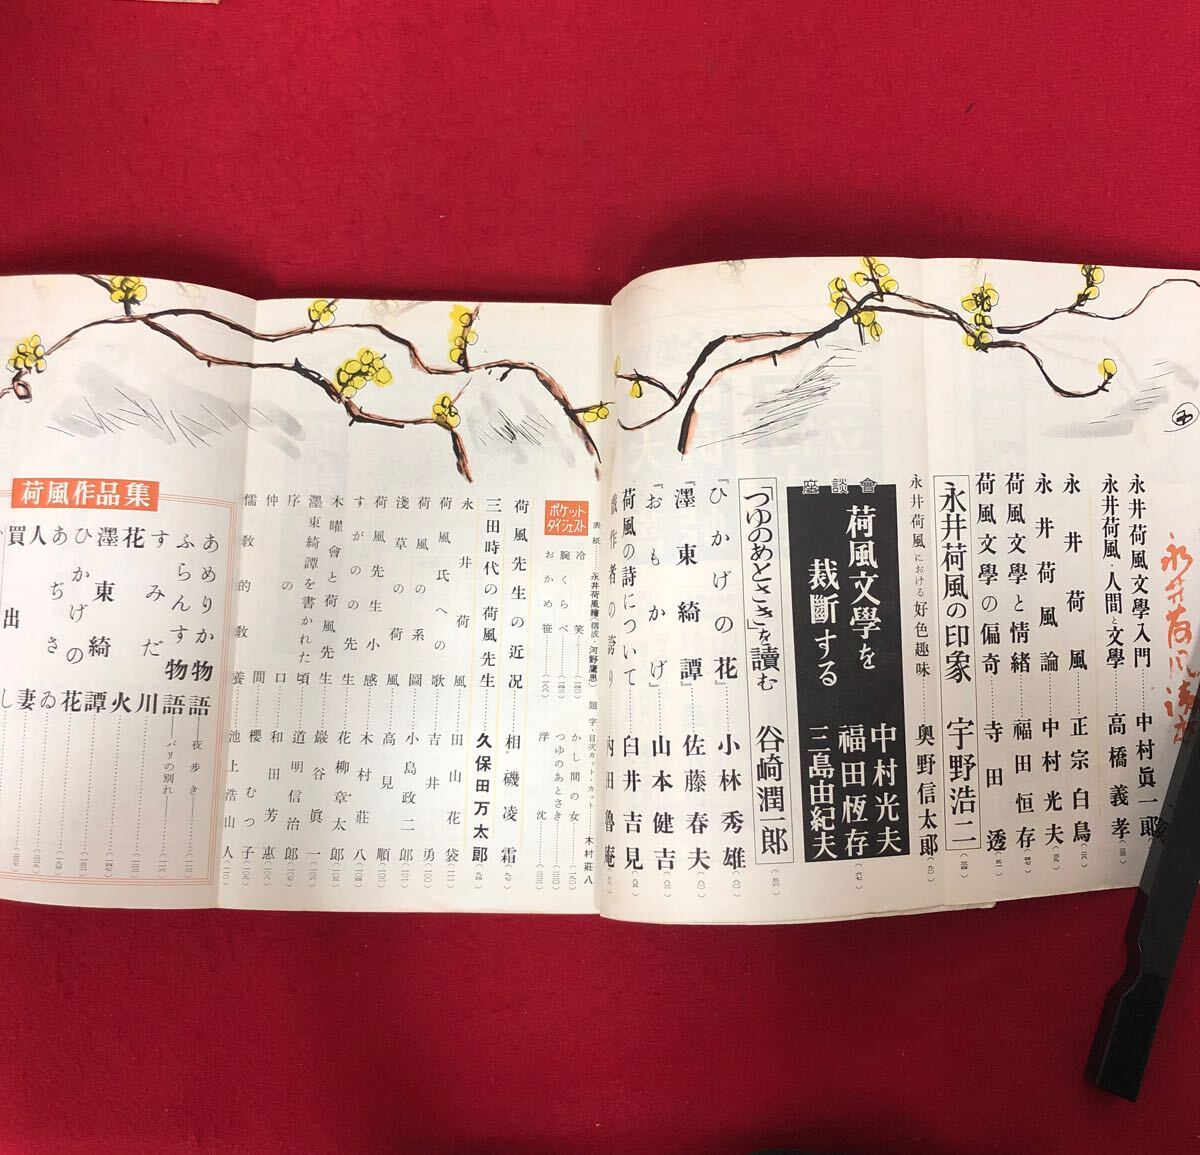 永井荷風讀本
永井荷風文學入門 中村眞一郎
永井荷風・人間と文學 高橋義孝
永井荷風 正宗白鳥
永井荷風論 中村光夫
荷風文學と情緒 福田恒存
荷風文學の偏奇 寺田透
永井荷風の印象 宇野浩二
永井荷風における好色趣味 奧野信太郎
座談會
荷風文學を裁斷する
中村光夫
福田恆存
三島由紀夫
「つゆのあとさき」を讀む 谷崎潤一郎
『ひかげの花』 小林秀雄
『濹東綺譚』 佐藤春夫
『おもかげ』 山本健吉
荷風の詩について 臼井吉見
戲作者の 内田魯庵
表紙 永井荷風繪(構成・河野鷹思) 題字・目次カット・カット 木村莊八
ポケットダイジェスト
冷笑 かし間の女
腕くらべ つゆのあとさき
おかめ笹 浮沈
荷風先生の近況 相磯凌霜
三田時代の荷風先生 久保田万太郎
永井荷風 田山花袋
荷風氏への歌 吉井勇
荷風の系圖 小島政二郎
淺草の荷風 高見順
荷風先生小感 木村莊八
すがの先生 花柳章太郎
木曜會と荷風先生 巖谷眞一
濹東綺譚を書かれた頃 道明信治郎
序の口 和田芳惠
仲間 櫻むつ子
儒敎的敎養 池上浩山人
荷風作品集
あめりか物語――夜歩き
ふらんす物語――パリの別れ
すみだ川
花火
濹東綺譚
ひかげの花
あぢさゐ
人妻
買出し